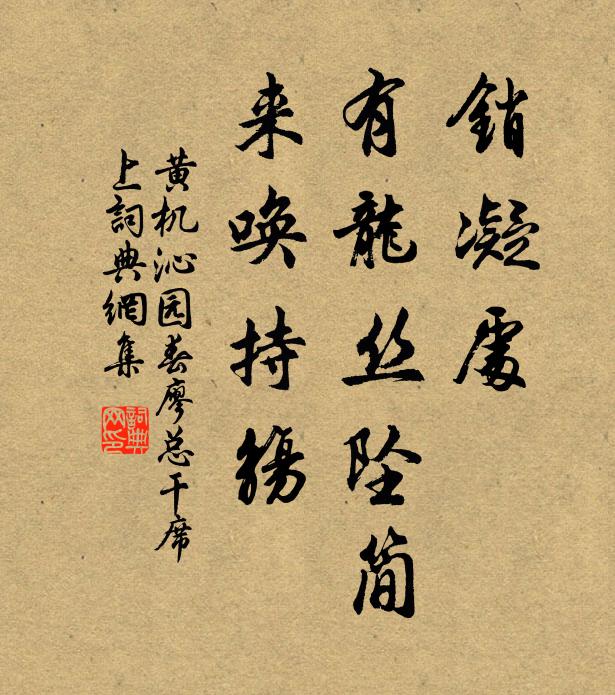 銷凝處
有龍丝坠简
来唤持觴
黄机沁园春廖总干席
上詞典網集
詞典网印